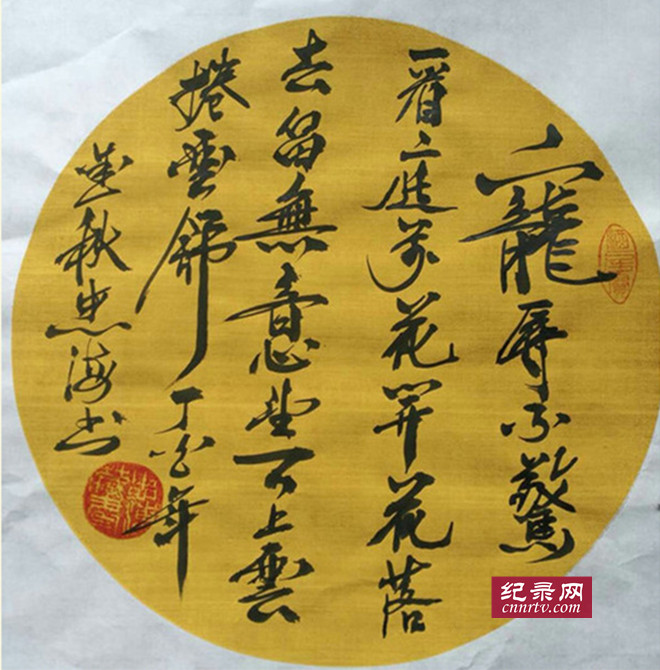 寵辱不驚
看庭前花開花落
去留無意望天上雲
捲雲舒 丁酉年
金秋忠海书
纪录网
cnnrtv.com